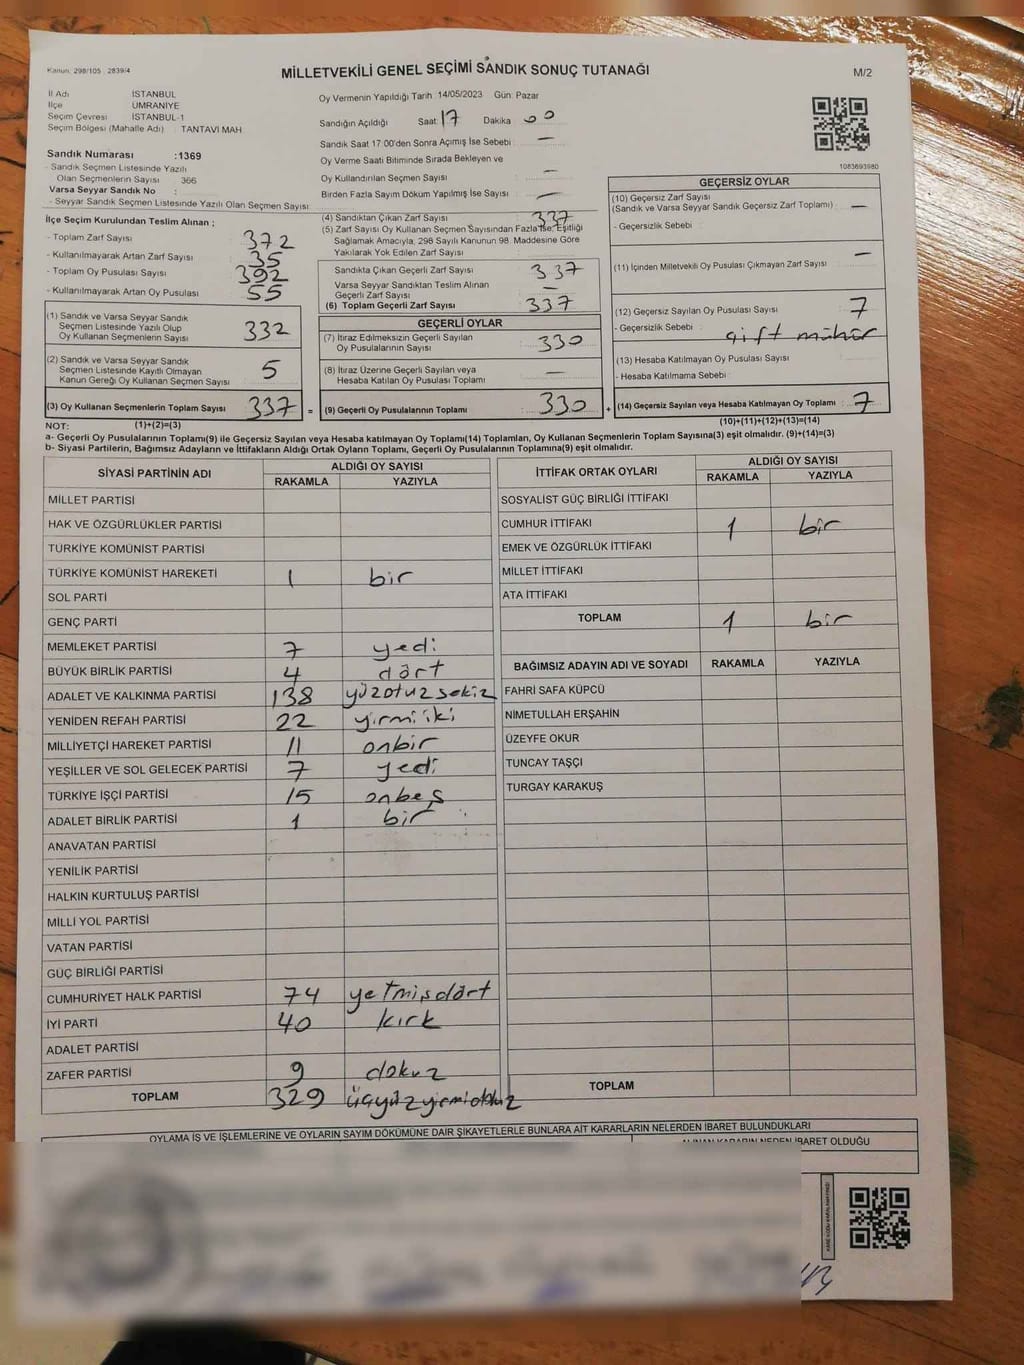 Kanun: 298/105 , 2839/4
MİLLETVEKİLİ GENEL SEÇİMİ SANDIK SONUÇ TUTANAĞI
M/2
İl Adı : İSTANBUL
İlçe : ÜMRANİYE
Seçim Çevresi : İSTANBUL-1
Seçim Bölgesi (Mahalle Adı) : TANTAVİ MAH
Sandık Numarası :1369
- Sandık Seçmen Listesinde Yazılı
Olan Seçmenlerin Sayısı : 366
Varsa Seyyar Sandık No :
- Seyyar Sandık Seçmen Listesinde Yazılı Olan Seçmen Sayısı:
Oy Vermenin Yapıldığı Tarih :14/05/2023 Gün: Pazar
Sandığın Açıldığı Saat: 17 Dakika 00
Sandık Saat 17:00'den Sonra Açımış İse Sebebi : —
Oy Verme Saati Bitiminde Sırada Bekleyen ve
Oy Kullandırılan Seçmen Sayısı : —
Birden Fazla Sayım Döküm Yapılmış İse Sayısı : —
1083693980
İlçe Seçim Kurulundan Teslim Alınan ;
- Toplam Zarf Sayısı : 372
- Kullanılmayarak Artan Zarf Sayısı : 35
- Toplam Oy Pusulası Sayısı : 392
- Kullanılmayarak Artan Oy Pusulası : 55
(1) Sandık ve Varsa Seyyar Sandık
Seçmen Listesinde Yazılı Olup
Oy Kullanan Seçmenlerin Sayısı : 332
(2) Sandık ve Varsa Seyyar Sandık
Seçmen Listesinde Kayıtlı Olmayan
Kanun Gereği Oy Kullanan Seçmen Sayısı : 5
(3) Oy Kullanan Seçmenlerin Toplam Sayısı : 337 =
(4) Sandıktan Çıkan Zarf Sayısı : 337
(5) Zarf Sayısı Oy Kullanan Seçmen Sayısından Fazla İse, Eşitliği
Sağlamak Amacıyla, 298 Sayılı Kanunun 98. Maddesine Göre
Yakılarak Yok Edilen Zarf Sayısı :
Sandıkta Çıkan Geçerli Zarf Sayısı : 337
Varsa Seyyar Sandıktan Teslim Alınan
Geçerli Zarf Sayısı : —
(6) Toplam Geçerli Zarf Sayısı : 337
GEÇERLİ OYLAR
(7) İtiraz Edilmeksizin Geçerli Sayılan
Oy Pusulalarının Sayısı : 330
(8) İtiraz Üzerine Geçerli Sayılan veya
Hesaba Katılan Oy Pusulası Toplamı : —
(9) Geçerli Oy Pusulalarının Toplamı : 330 +
GEÇERSİZ OYLAR
(10) Geçersiz Zarf Sayısı
(Sandık ve Varsa Seyyar Sandık Geçersiz Zarf Toplamı) : —
- Geçersizlik Sebebi :
(11) İçinden Milletvekili Oy Pusulası Çıkmayan Zarf Sayısı : —
(12) Geçersiz Sayılan Oy Pusulası Sayısı : 7
- Geçersizlik Sebebi : çift mühür
(13) Hesaba Katılmayan Oy Pusulası Sayısı :
- Hesaba Katılmama Sebebi :
(14) Geçersiz Sayılan veya Hesaba Katılmayan Oy Toplamı : 7
NOT: (1)+(2)=(3)
(10)+(11)+(12)+(13)=(14)
a- Geçerli Oy Pusulalarının Toplamı(9) ile Geçersiz Sayılan veya Hesaba katılmayan Oy Toplamı(14) Toplamları, Oy Kullanan Seçmenlerin Toplam Sayısına(3) eşit olmalıdır. (9)+(14)=(3)
b- Siyasi Partilerin, Bağımsız Adayların ve İttifakların Aldığı Ortak Oyların Toplamı, Geçerli Oy Pusulalarının Toplamına(9) eşit olmalıdır.
SİYASİ PARTİNİN ADI ALDIĞI OY SAYISI
RAKAMLA YAZIYLA
MİLLET PARTİSİ
HAK VE ÖZGÜRLÜKLER PARTİSİ
TÜRKİYE KOMÜNİST PARTİSİ
TÜRKİYE KOMÜNİST HAREKETİ 1 bir
SOL PARTİ
GENÇ PARTİ
MEMLEKET PARTİSİ 7 yedi
BÜYÜK BİRLİK PARTİSİ 4 dört
ADALET VE KALKINMA PARTİSİ 138 yüzotuzsekiz
YENİDEN REFAH PARTİSİ 22 yirmiiki
MİLLİYETÇİ HAREKET PARTİSİ 11 onbir
YEŞİLLER VE SOL GELECEK PARTİSİ 7 yedi
TÜRKİYE İŞÇİ PARTİSİ 15 onbeş
ADALET BİRLİK PARTİSİ 1 bir
ANAVATAN PARTİSİ
YENİLİK PARTİSİ
HALKIN KURTULUŞ PARTİSİ
MİLLİ YOL PARTİSİ
VATAN PARTİSİ
GÜÇ BİRLİĞİ PARTİSİ
CUMHURİYET HALK PARTİSİ 74 yetmişdört
İYİ PARTİ 40 kırk
ADALET PARTİSİ
ZAFER PARTİSİ 9 dokuz
TOPLAM 329 üçyüzyirmidokuz
İTTİFAK ORTAK OYLARI ALDIĞI OY SAYISI
RAKAMLA YAZIYLA
SOSYALİST GÜÇ BİRLİĞİ İTTİFAKI
CUMHUR İTTİFAKI 1 bir
EMEK VE ÖZGÜRLÜK İTTİFAKI
MİLLET İTTİFAKI
ATA İTTİFAKI
TOPLAM 1 bir
BAĞIMSIZ ADAYIN ADI VE SOYADI RAKAMLA YAZIYLA
FAHRİ SAFA KÜPCÜ
NİMETULLAH ERŞAHİN
ÜZEYFE OKUR
TUNCAY TAŞÇI
TURGAY KARAKUŞ
TOPLAM
OYLAMA İŞ VE İŞLEMLERİNE VE OYLARIN SAYIM DÖKÜMÜNE DAİR ŞİKAYETLERLE BUNLARA AİT KARARLARIN NELERDEN İBARET BULUNDUKLARI
ALINAN KARARIN NEDEN İBARET OLDUĞU